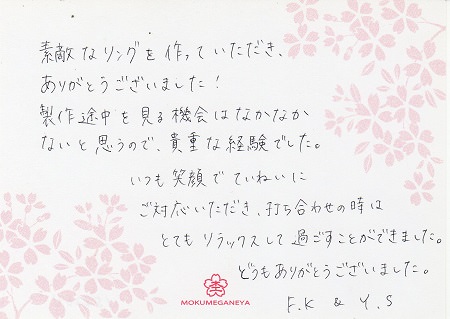 素敵なリングを作っていただき、
ありがとうございました!
製作途中を見る機会はなかなか
ないと思うので、貴重な経験でした。
いつも笑顔でていねいに
ご対応いただき、打ち合わせの時は
とてもリラックスして過ごすことができました。
どうもありがとうございました。
F.K & Y.S
MOKUMEGANEYA